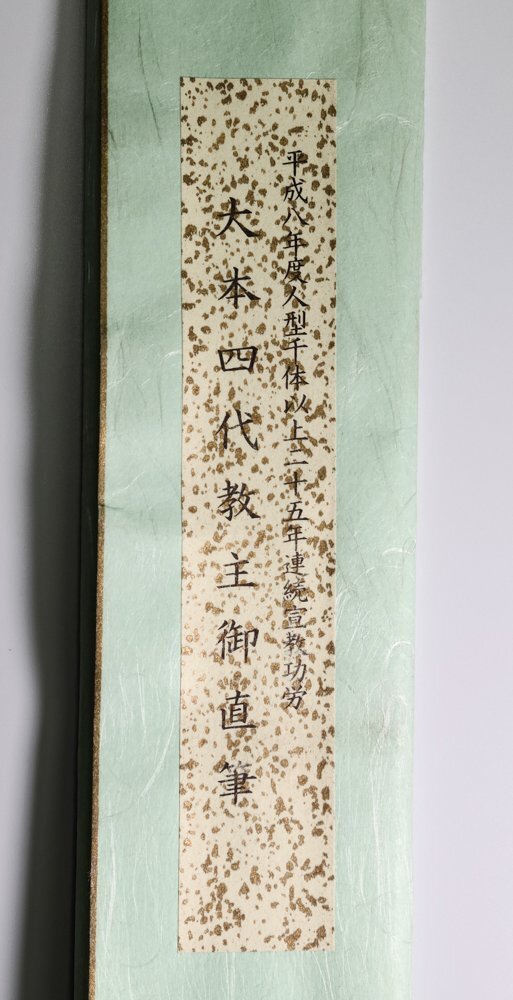 平成八年度人型千体以上二十五年連続宣教功労
大本四代教主御直筆